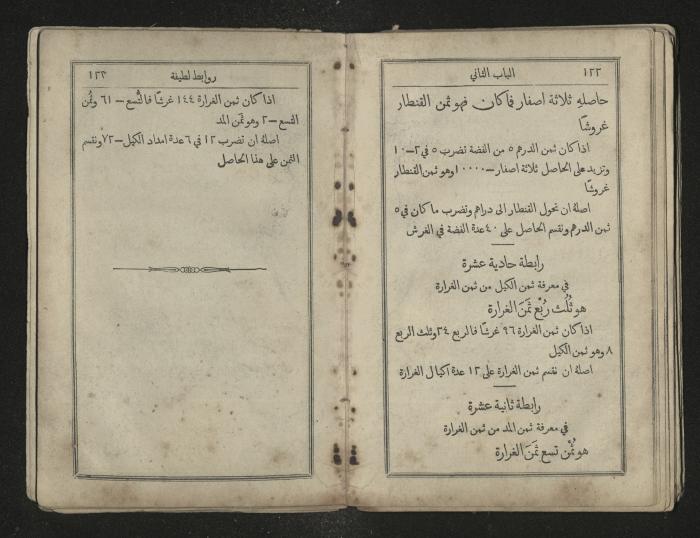 ١٢٢ الباب الثاني
حاصله ثلاثة اصفار فما كان فهو ثمن القنطار
غروشًا
اذا كان ثمن الدرهم ٥ من الفضة تضرب ٥ في ٢—١٠
وتزيد على الحاصل ثلاثة اصفار—١٠٠٠٠ وهو ثمن القنطار
غروشًا
اصلهُ ان تحول القنطار الى دراهم وتضرب ما كان في ٥
ثمن الدرهم وتقسم الحاصل على ٤٠ عدة الفضة في الغرش
رابطة حادية عشرة
في معرفة ثمن الكيل من ثمن الغرارة
هو ثُلُث رُبْع ثَمَنَ الغرارة
اذا كان ثمن الغرارة ٩٦ غرشًا فالربع ٢٤ وثلث الربع
٨ وهو ثمن الكيل
اصلهُ ان نقسم ثمن الغرارة على ١٢ عدة اكيال الغرارة
رابطة ثانية عشرة
في معرفة ثمن المد من ثمن الغرارة
هو ثُمْن تسع ثَمَنَ الغرارة
روابط لطيفة ١٢٣
اذا كان ثمن الغرارة ١٤٤ غرشًا فالتُسع—٦١ وثُمن
التسع—٢ وهو ثمن المد
اصلهُ ان تضرب ١٢ في ٦ عدة امداد الكيل—٧٢ ونقسم
الثمن على هذا الحاصل